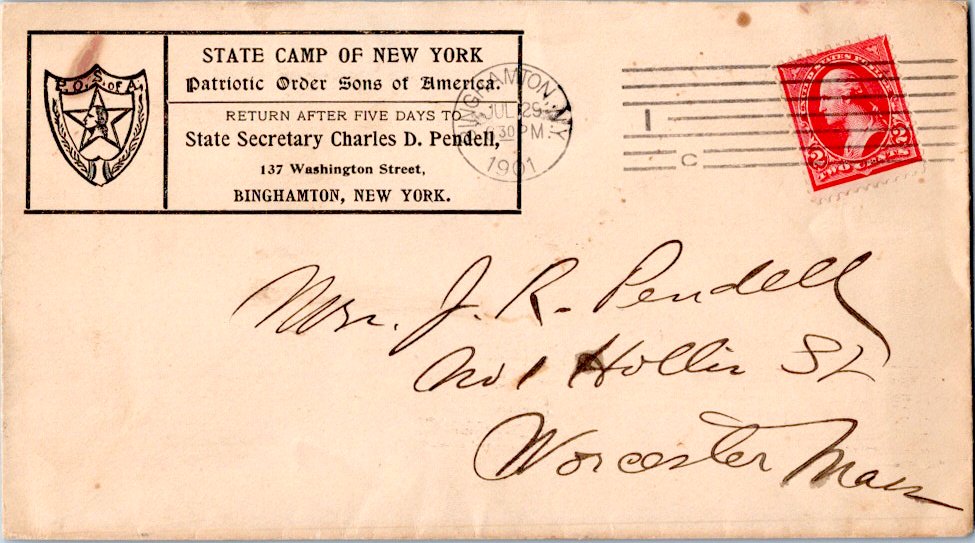 P.O.S. of A.
STATE CAMP OF NEW YORK
Patriotic Order Sons of America.
RETURN AFTER FIVE DAYS TO
State Secretary Charles D. Pendell,
137 Washington Street,
BINGHAMTON, NEW YORK.
BINGHAMTON, N.Y.
JUL 29
30 PM
1901
1
C
2 2
TWO CENTS
Mrs. J. R. Pendell
No 1 Hollis St
Worcester Mass